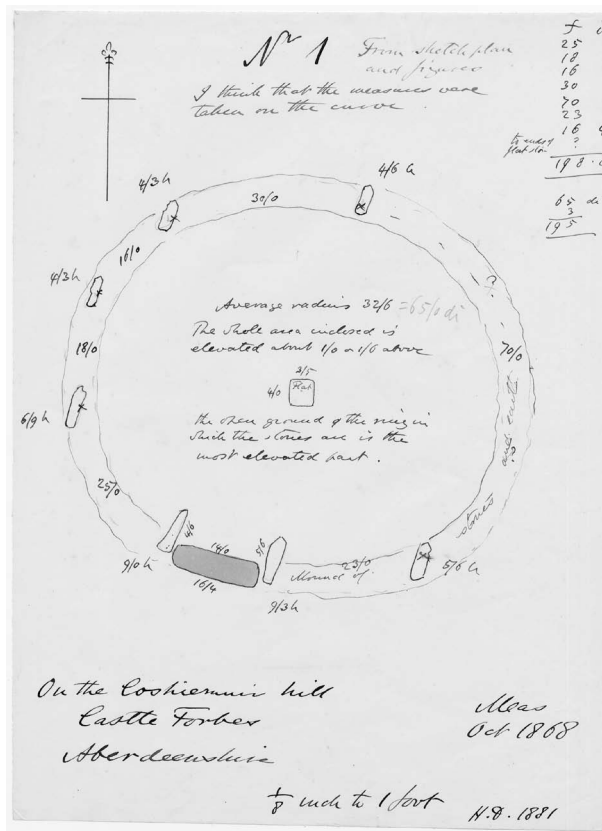 No 1
From sketch plan
and figures
I think that the measures were
taken on the curve.
f
25
18
16
30
70
23
16
to ends of
flat ston
?
198
65 di
3
195
4/3 h
30/0
4/6 h
16/0
4/3 h
Average radius 32/6 = 65/0 di
The whole area inclosed is
elevated about 1/0 or 1/6 above
18/0
70/0
3/5
4/0
Flat
6/9 h
the open ground & the ring in
which the stones are is the
most elevated part.
25/0
Mound of
stones
and earth?
?
9/0 h
14/0
5/6
16/4
23/0
5/6 h
9/3 h
On the Coshiemuir hill
Castle Forbes
Aberdeenshire
Meas
Oct 1868
1/8 inch to 1 foot
H.D. 1881